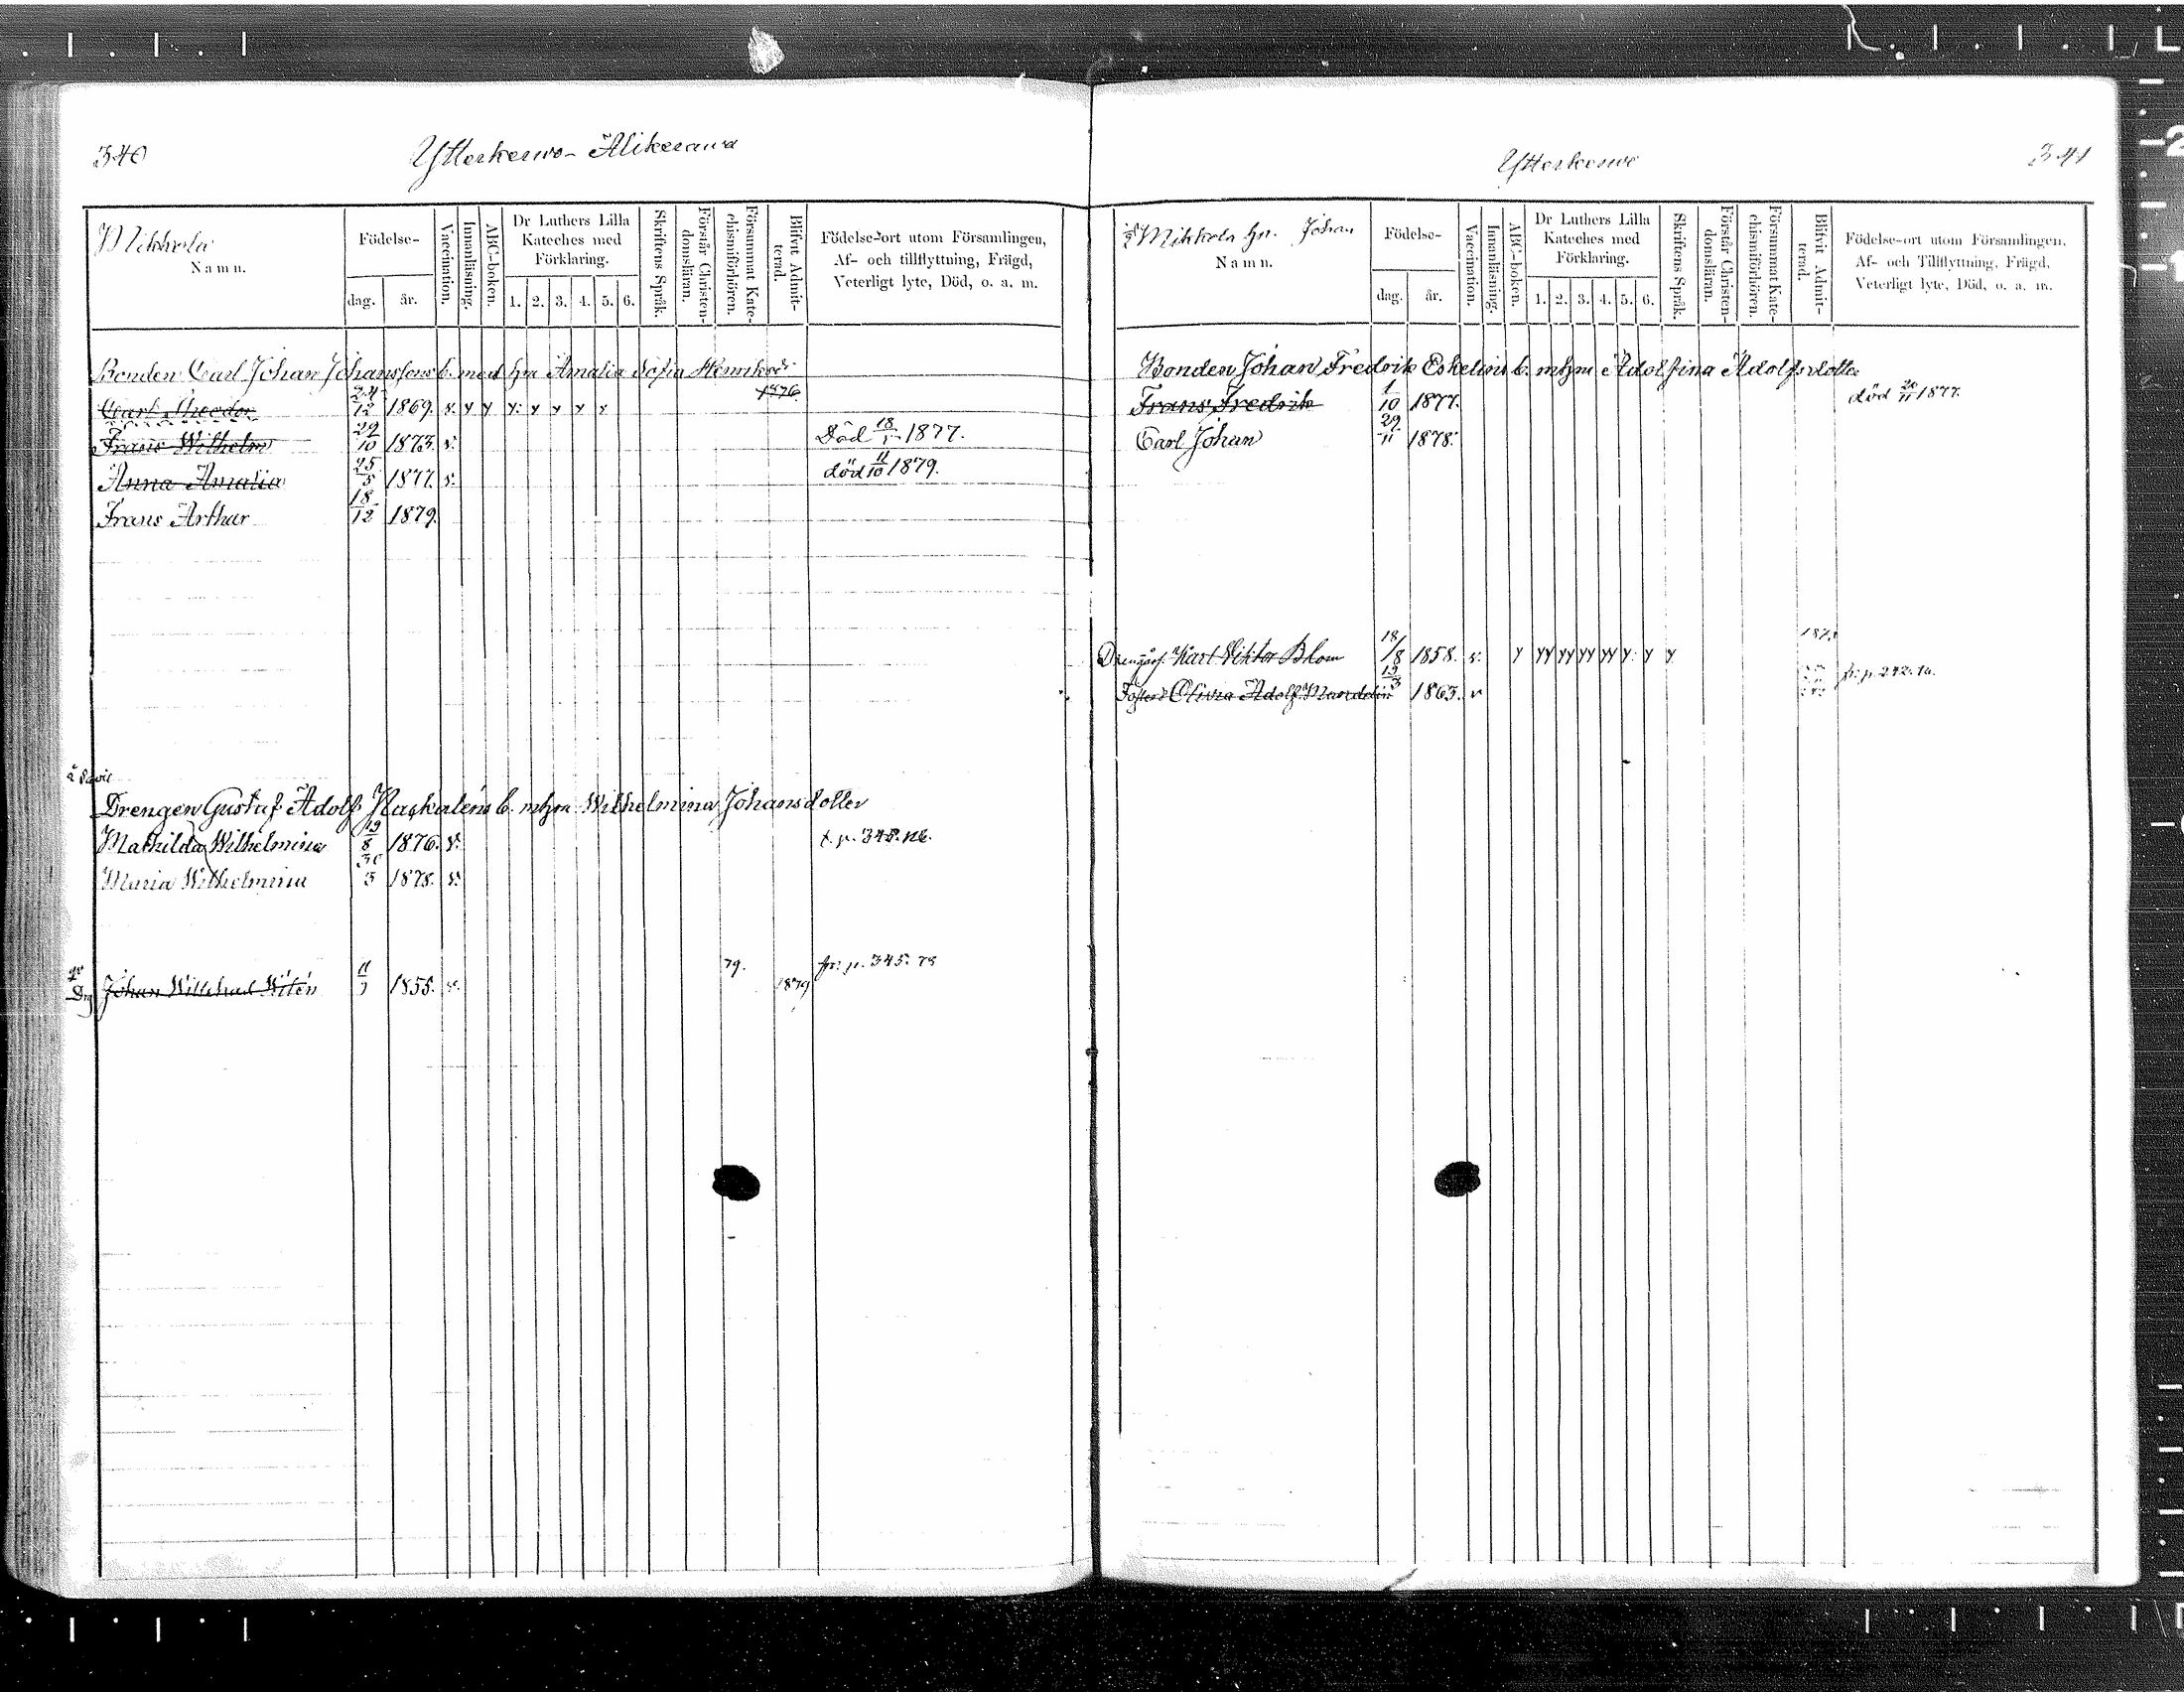 340
Ytterkerwo- Alikerawa
Mikkola
Namn.
Födelse-
dag.
år.
Vaccination.
Innanläsning.
ABC-boken.
Dr Luthers Lilla
Kateches med
Förklaring.
1. 2. 3. 4. 5. 6.
Skriftens Språk.
Förstår Christen-
domsläran.
Försummat Kate-
chismiförhören.
Blifvit Admit-
terad.
Födelse-ort utom Församlingen,
Af- och tillflyttning, Frägd,
Veterligt lyte, Död, o. a. m.
Bonden Carl Johan Johanssons b. med hu Amalia Sofia Henriksd:
1876.
Carl Theodor 24/12 1869. v. y y y: y y y y
Frans Wilhelm 29/10 1873. v: Död 1877.
Anna Amalia 25/5 1877. v. död 11/10 1879.
Frans Arthur 18/12 1879.
Drengen Gustaf Adolf b. mhu Wilhelmina Johansdotter
Mathilda Wilhelmina 19/8 1876. v: t. p. 345.
Maria Wilhelmina 30/3 1878. v:
79. fr: p. 345. 78
Drg Johan Willehad Witén 1855. v. 1879
341
Ytterkerwo
Mikkola hn. Johan
Namn.
Födelse-
dag.
år.
Vaccination.
Innanläsning.
ABC-boken.
Dr Luthers Lilla
Kateches med
Förklaring.
1. 2. 3. 4. 5. 6.
Skriftens Språk.
Förstår Christen-
domsläran.
Försummat Kate-
chismiförhören.
Blifvit Admit-
terad.
Födelse-ort utom Församlingen,
Af- och Tillflyttning, Frägd,
Veterligt lyte, Död, o. a. m.
Bonden Johan Fredrik Eskelins b. mhu Adolfina Adolfsdotter
Frans Fredrik 1/10 1877. död 20/11 1877.
Carl Johan 29/11 1878.
Karl Viktor Blom 18/8 1858. v. y yy yy yy yy y: y y
Olivia Adolf: 13/3 1863. v fr: p. 242.